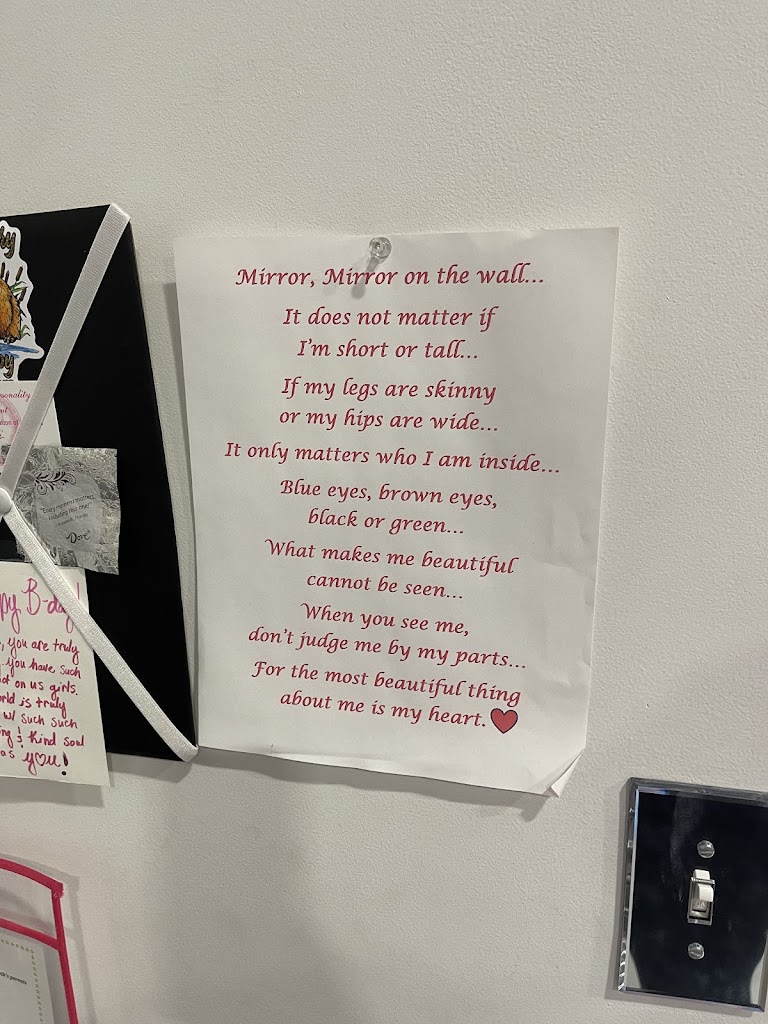 Mirror, Mirror on the wall...
It does not matter if
I'm short or tall...
If my legs are skinny
or my hips are wide...
It only matters who I am inside...
Blue eyes, brown eyes,
black or green...
What makes me beautiful
cannot be seen...
When you see me,
don't judge me by my parts...
For the most beautiful thing
about me is my heart.
"Every moment matters,
including this one!"
Dove
B-day!
you are truly
you have such
on us girls.
is truly
w/ such such
& kind soul
as you!
parents